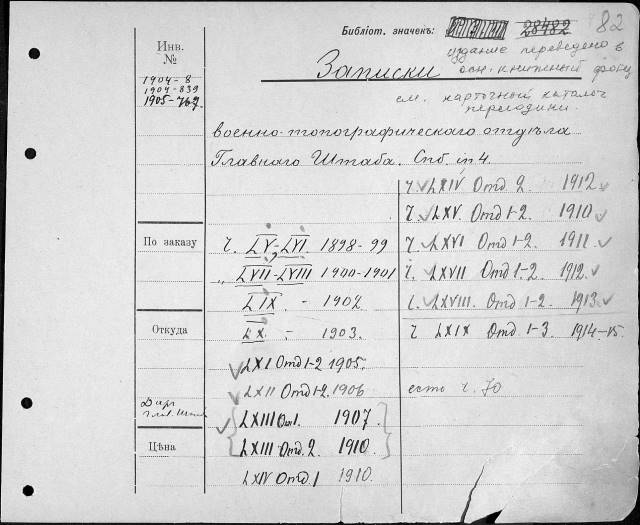 82
Библіот. значекъ: 28482
Инв.
№
1904-8
1904-839
1905-
Записки
издание переведено в
осн. книжный фонд
см. карточный каталог
периодики.
военно-топографическаго отдѣла
Главнаго Штаба. Спб. in 4.
По заказу
Ч. LV-LVI 1898-99
„ LVII-LVIII 1900-1901
LIX. - 1902
LX. - 1903.
Откуда
LXI Отд 1-2 1905.
LXII Отд 1-2. 1906
LXIII От. 1. 1907
LXIII Отд. 2. 1910
LXIV Отд 1 1910.
Даръ
Цѣна
Ч. LXIV Отд. 2. 1912
Ч. LXV. Отд 1-2. 1910
Ч. LXVI Отд 1-2. 1911
Ч. LXVII Отд 1-2. 1912
Ч. LXVIII. Отд 1-2. 1913
Ч LXIX Отд 1-3. 1914-15.
есть ч. 70